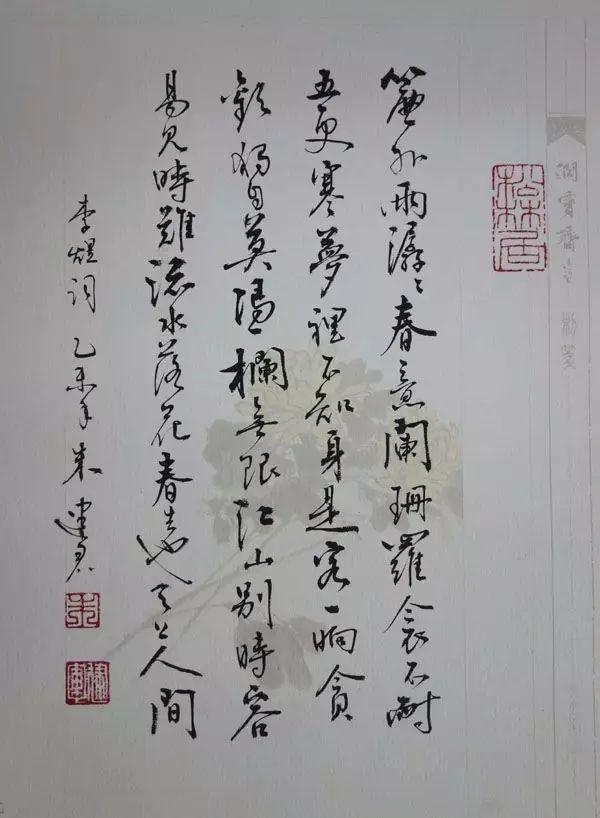 簾外雨潺〻春意闌珊羅衾不耐
五更寒夢裡不知身是客一晌貪
歡獨自莫憑欄無限江山別時容
易見時難流水落花春去也天上人間
李煜詞 乙未年 朱建軍
朱
建軍